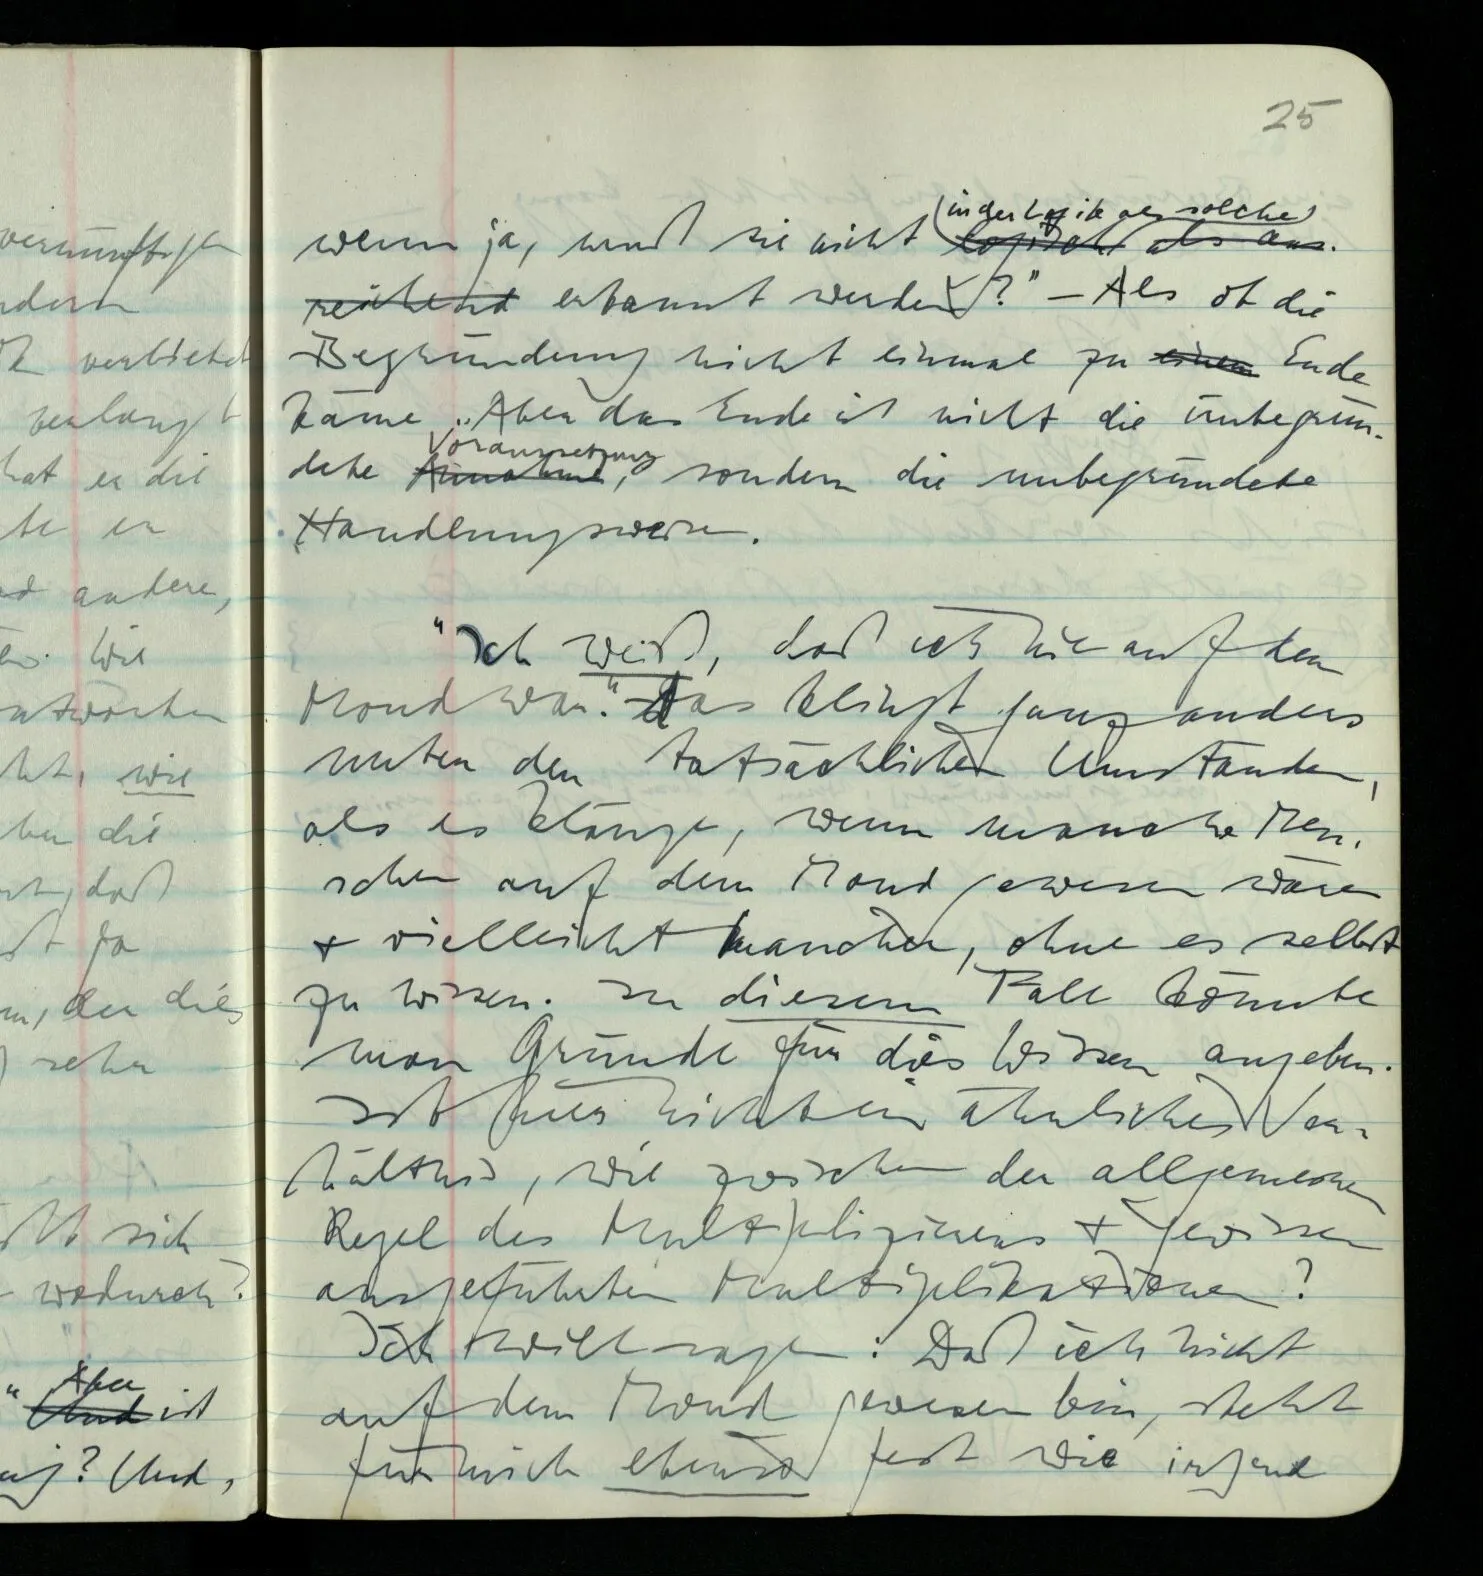 25
vernünftigen
wenn ja, muß sie nicht logisch als aus-
(in der Logik als solche)
reichend erkannt werden)?" – Als ob die
Begründung nicht einmal zu einem Ende
verbietet
käme. Aber das Ende ist nicht die unbegrün-
verlangt
Voraussetzung
dete Annahme, sondern die unbegründete
hat er die
Handlungsweise.
er
andere,
"Ich weiß, daß ich nie auf dem
wie
Mond war." Das klingt ganz anders
antworten
unter den tatsächlichen Umständen,
wie
als es klänge, wenn manche Men-
die
schen auf dem Mond gewesen wären
daß
+ vielleicht mancher, ohne es selbst
ja
zu wissen. In diesem Fall könnte
der dies
man Gründe für dies Wissen angeben.
sehr
Ist hier nicht ein ähnliches Ver-
hältnis, wie zwischen der allgemeinen
Regel des Multiplizierens + gewissen
sich
ausgeführten Multiplikationen?
wodurch?
Ich will sagen: Daß ich nicht
Aber
auf dem Mond gewesen bin, steht
" Und ist
für mich ebenso fest wie irgend
? Und,